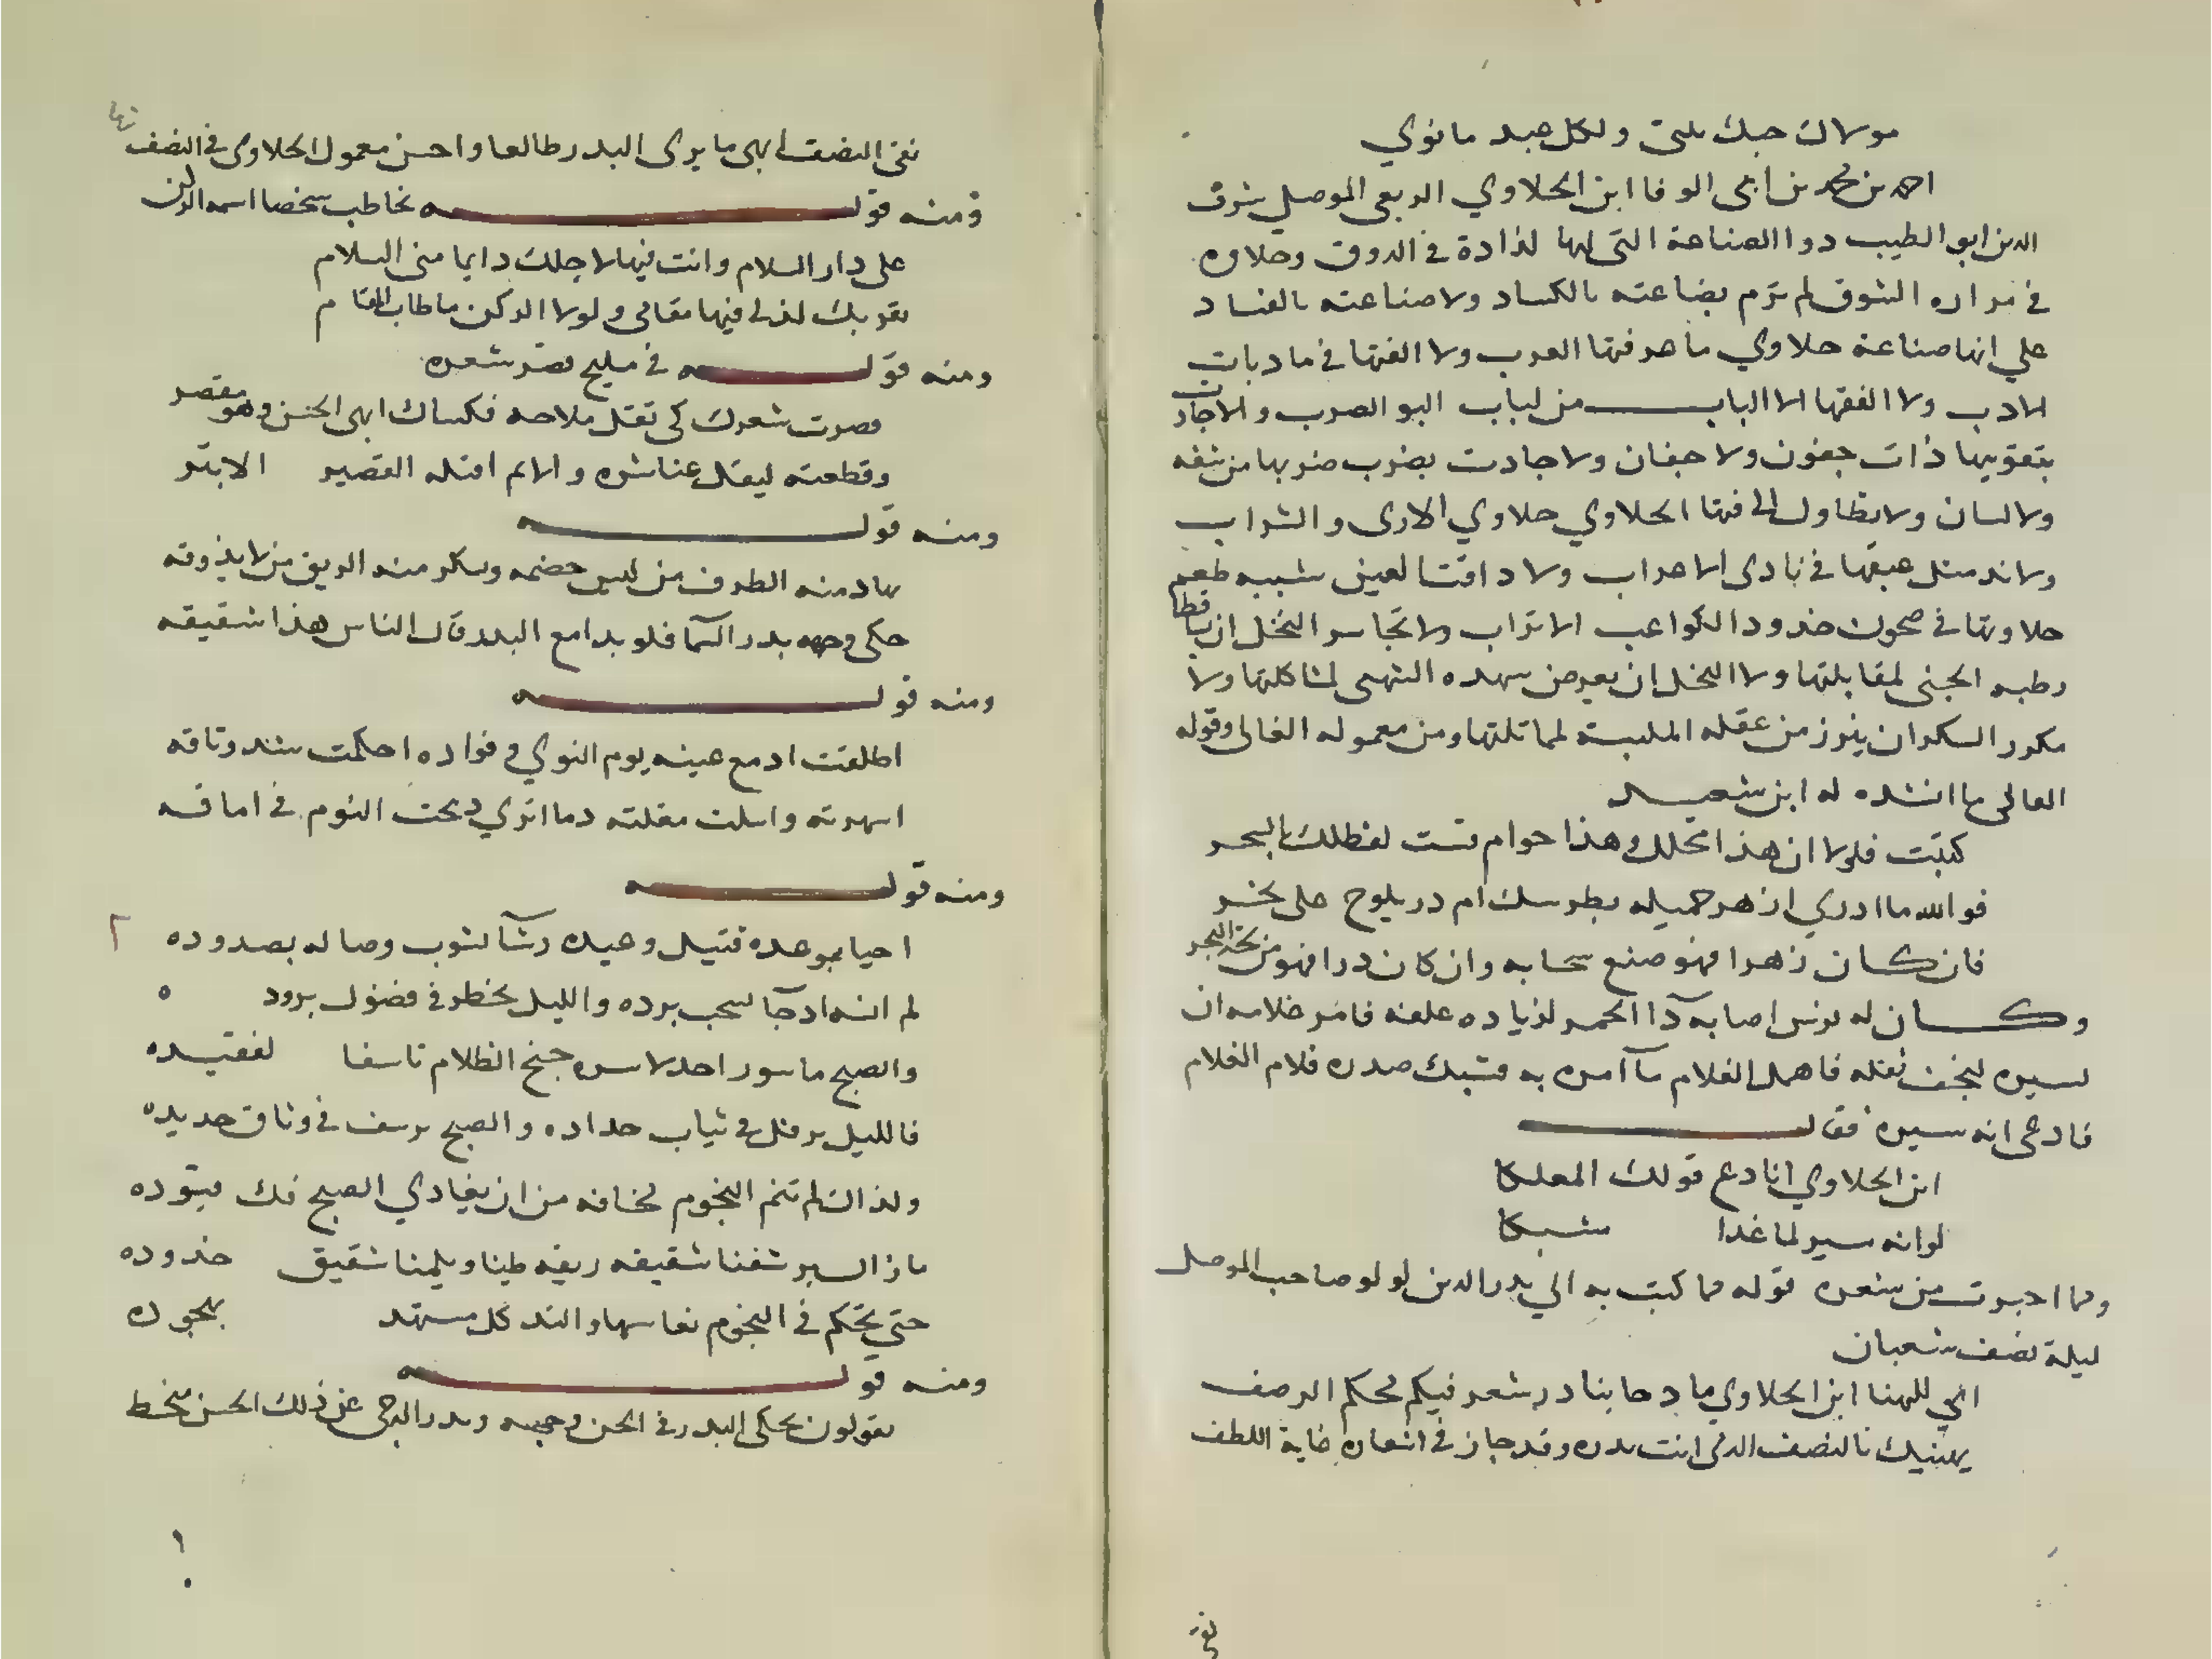 مولاك حبك نيتي ولكل عبد ما نوي
احمد بن محمد بن ابى الوفا ابن الحلاوي الربعى الموصلي شرف
الدين ابو الطيب ذو الصناعة التى لها لذاذة في الذوق وحلاوه
في مراره الشوق لم ترم بضاعته بالكساد ولا صناعته بالفساد
علي انها صناعة حلاوي ما عرفتها العرب ولا الفتها في مادبات
الادب ولا الفقها الا الباب من لباب البو الصرب والاجادت
بتقويها ذات جفون ولا جفان ولا جادت بضرب ضربها من شفه
ولا لسان ولا يطاول الحلاوي حلاوي الارى والشراب
ولا ند مثل عبقها في نادى الاعراب ولا دافت العين شبيه طعم
حلاوتها في صحون خدود الكواعب الاتراب ولا تجاسر النخل ان قطا
رطبه الجنى لمقابلتها ولا النحل ان يعرض شهده الشهى لمشاكلتها ولا
مكرر السكر ان يبرز من عقله الملبسة لمماثلتها ومن معموله الغالى وقوله
العالى ما انشده له ابن سعيد
كتبت فلولا ان هذا محلل وهذا حرام قست لفظك بالسحر
فوالله ما ادري ازهر خميله بطرسك ام در يلوح على نحر
فان كان زهرا فهو صنع سحابه وان كان درا فهو من لجة البحر
وكان له برنس اصابه دآ الحمر لزياده علفه فامر غلامه ان
يسيره ليخف ثقله فاهمل الغلام مآ امره به فشبك صدره فلام الغلام
فادعى انه سيره فقال
ابن الحلاوي انا دع قولك المعلكا
لو انه سير لما غدا مشبكا
ومما اخترت من شعره قوله مما كتب به الي بدر الدين لولو صاحب الموصل
ليلة نصف شعبان
اتي للهنا ابن الحلاوي مادحا بنادر شعر فيكم محكم الرصف
يهنيك بالنصف الذى انت بدره وقد جاز في انعامه غاية اللطف
ففى النصف ابهى ما يرى البدر طالعا واحسن معمول الحلاوى في النصف
ومنه قوله يخاطب شخصا اسمه الركن
على دار السلام وانت فيها لاجلك دايما منى السلام
بقربك لذ لى فيها مقامى ولولا الركن ما طاب المقام
ومنه قوله في مليح قصر شعره
قصرت شعرك كى تقل ملاحه فكساك ابهى الحسن وهو مقصر
وقطعته ليقل عنا شره والايم اقتله القصير الابتر
ومنه قوله
يهاد منه الطرف من ليس خصمه ويسكر منه الريق من لا يذوقه
حكى وجهه بدر السما فلو بدا مع البدر قال الناس هذا شقيقه
ومنه قوله
اطلقت ادمع عينه يوم النوي وفواده احكمت شد وثاقه
اسهرته واسلت مقلته دما اتري ذبحت النوم في اماقه
ومنه قوله
احيا بموعده قتيل وعيده رشآ يشوب وصاله بصدوده
لم انسه اذ جآ يسحب برده والليل يخطر في فضول بروده
والصبح ماسور احد لاسره جنح الظلام تاسفا لفقيده
فالليل يرفل في ثياب حداده والصبح يرسف في وثاق حديده
ولذاك لم تنم النجوم مخافه من ان يفادي الصبح فك قيوده
ما زال يرشفنا شقيقه ريقه طيبا ويلثمنا شقيق خدوده
حتى تحكم في النجوم نعاسها والتذ كل مسهد بهجوده
ومنه قوله
يقولون يحكى البدر في الحسن وجهه وبدر الدجى عن ذلك الحسن منحط